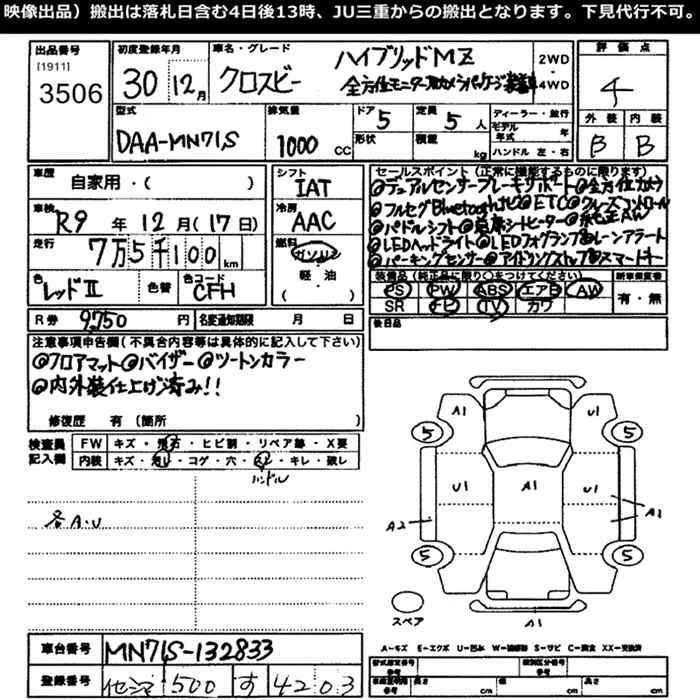 映像出品）搬出は落札日含む4日後13時、JU三重からの搬出となります。下見代行不可。
出品番号
[1911]
3506
初度登録年月
30 12月
車名・グレード
クロスビー
ハイブリッドMZ
全方位モニター用カメラパッケージ装着車
2WD
4WD
評価点
4
外装 内装
B B
型式
DAA-MN71S
排気量
1000 CC
ドア 5
形状
定員 5 人
積載 kg
ディーラー・並行
モデル年式 年
ハンドル 左・右
車歴
自家用・( )
車検
R9 年 12 月 (17日)
走行
7万5千100 km
色
レッドII
色替
色コード
CFH
シフト
IAT
冷房
AAC
燃料
ガソリン
軽・油
( )
セールスポイント(正常に機能するものに限ります)
◎デュアルセンサーブレーキサポート ◎全方位カメラ
◎フルセグBluetoothナビ ◎ETC ◎クルーズコントロール
◎パドルシフト ◎前席シートヒーター ◎純正AW
◎LEDヘッドライト ◎LEDフォグランプ ◎レーンアラート
◎パーキングセンサー ◎アイドリングストップ ◎スマートキー
装備品(純正品に限り○をつけてください)
PS PW ABS エアB AW
SR TV カワ
新車保証書
有・無
後日品
R券 9,750 円
名変通知期限 月 日
注意事項申告欄(不具合内容等は具体的に記入して下さい)
◎フロアマット ◎バイザー ◎ツートンカラー
◎内外装仕上げ済み!!
修復歴 有(箇所 )
検査員記入欄
FW キズ・飛石・ヒビ割・リペア跡・X要
内装 キズ・汚レ・コゲ・穴・スレ・キレ・破レ
ハンドル
各A.U
A1 U1
5 5
U1 A1 U1
A2 A1
5 5
スペア
A1
A—キズ E—エクボ U—凹ミ W—補修跡 S—サビ C—腐食 XX—交換済
車台番号
MN71S-132833
登録番号
500 す 4203
型式指定番号
類別区分番号
長さ cm
幅 cm
高さ cm